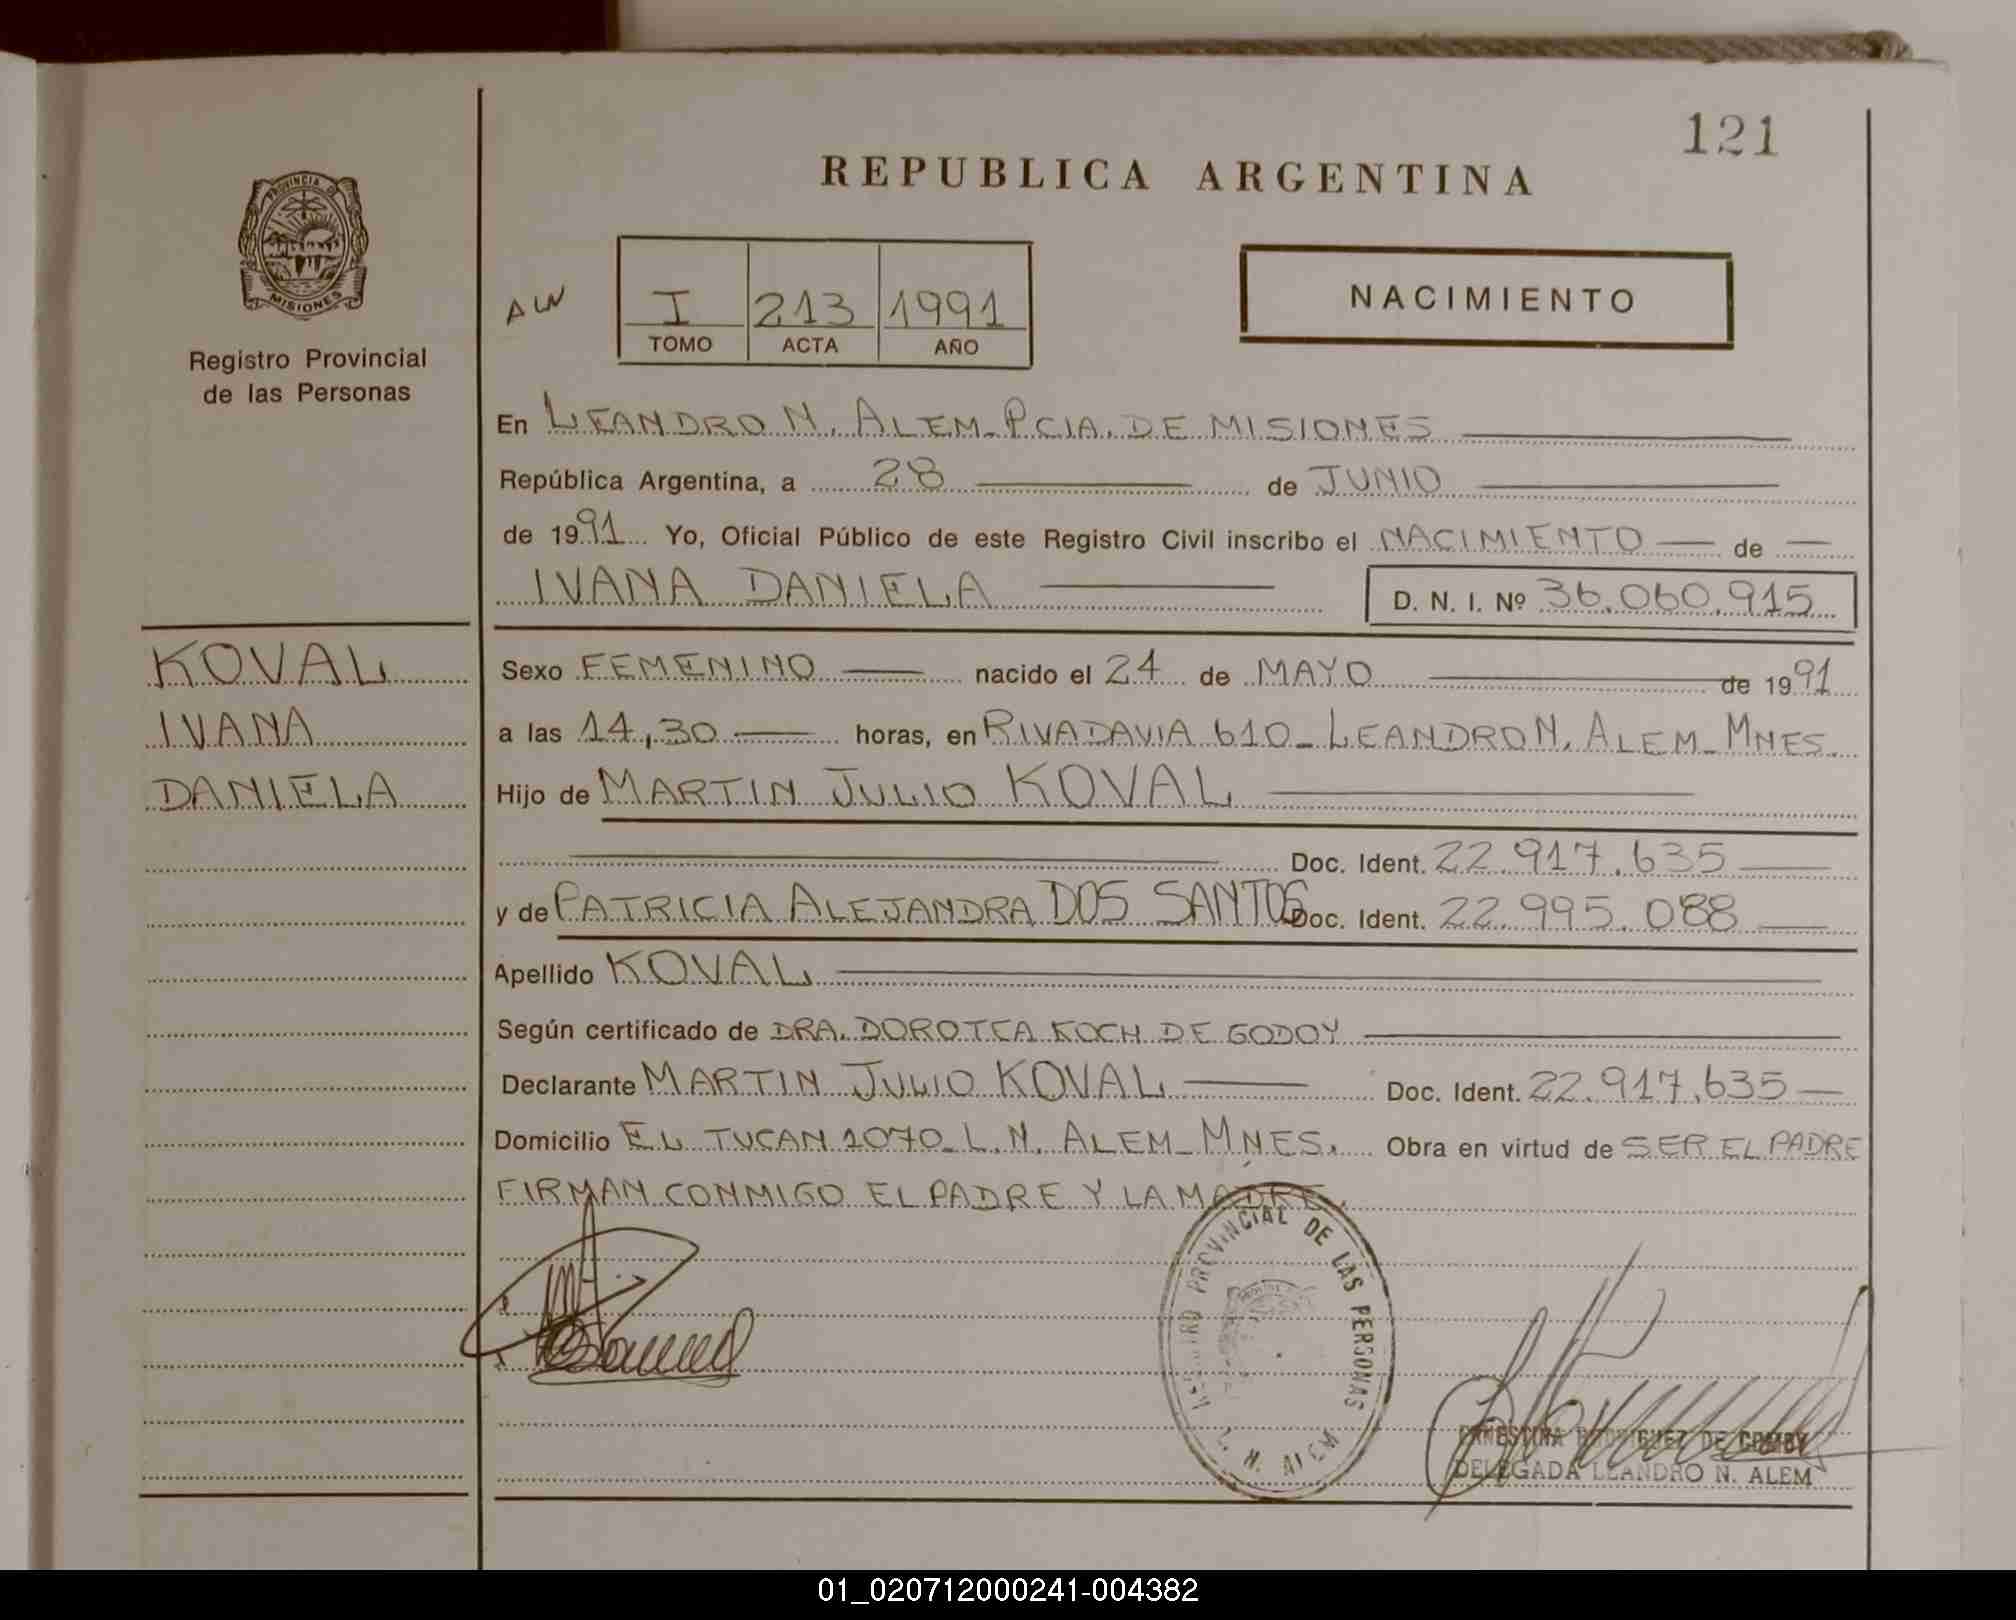 121
REPUBLICA ARGENTINA
PROVINCIA D
MISIONES
Registro Provincial
de las Personas
AW
I 213 1991
TOMO ACTA AÑO
NACIMIENTO
En LEANDRO N. ALEM_PCIA. DE MISIONES
República Argentina, a 28 de JUNIO
de 1991 Yo, Oficial Público de este Registro Civil inscribo el NACIMIENTO de
IVANA DANIELA D. N. I. Nº 36.060.915
KOVAL
IVANA
DANIELA
Sexo FEMENINO nacido el 24 de MAYO de 1991
a las 14,30 horas, en RIVADAVIA 610_LEANDRO N. ALEM_MNES.
Hijo de MARTIN JULIO KOVAL
Doc. Ident. 22.917.635
y de PATRICIA ALEJANDRA DOS SANTOS Doc. Ident. 22.995.088
Apellido KOVAL
Según certificado de DRA. DOROTEA KOCH DE GODOY
Declarante MARTIN JULIO KOVAL Doc. Ident. 22.917.635
Domicilio EL TUCAN 1070_L.N. ALEM_MNES. Obra en virtud de SER EL PADRE
FIRMAN CONMIGO EL PADRE Y LA MADRE.
REGISTRO PROVINCIAL DE LAS PERSONAS
L. N. ALEM
ERNESTINA RODRIGUEZ DE
DELEGADA LEANDRO N. ALEM
01_020712000241-004382